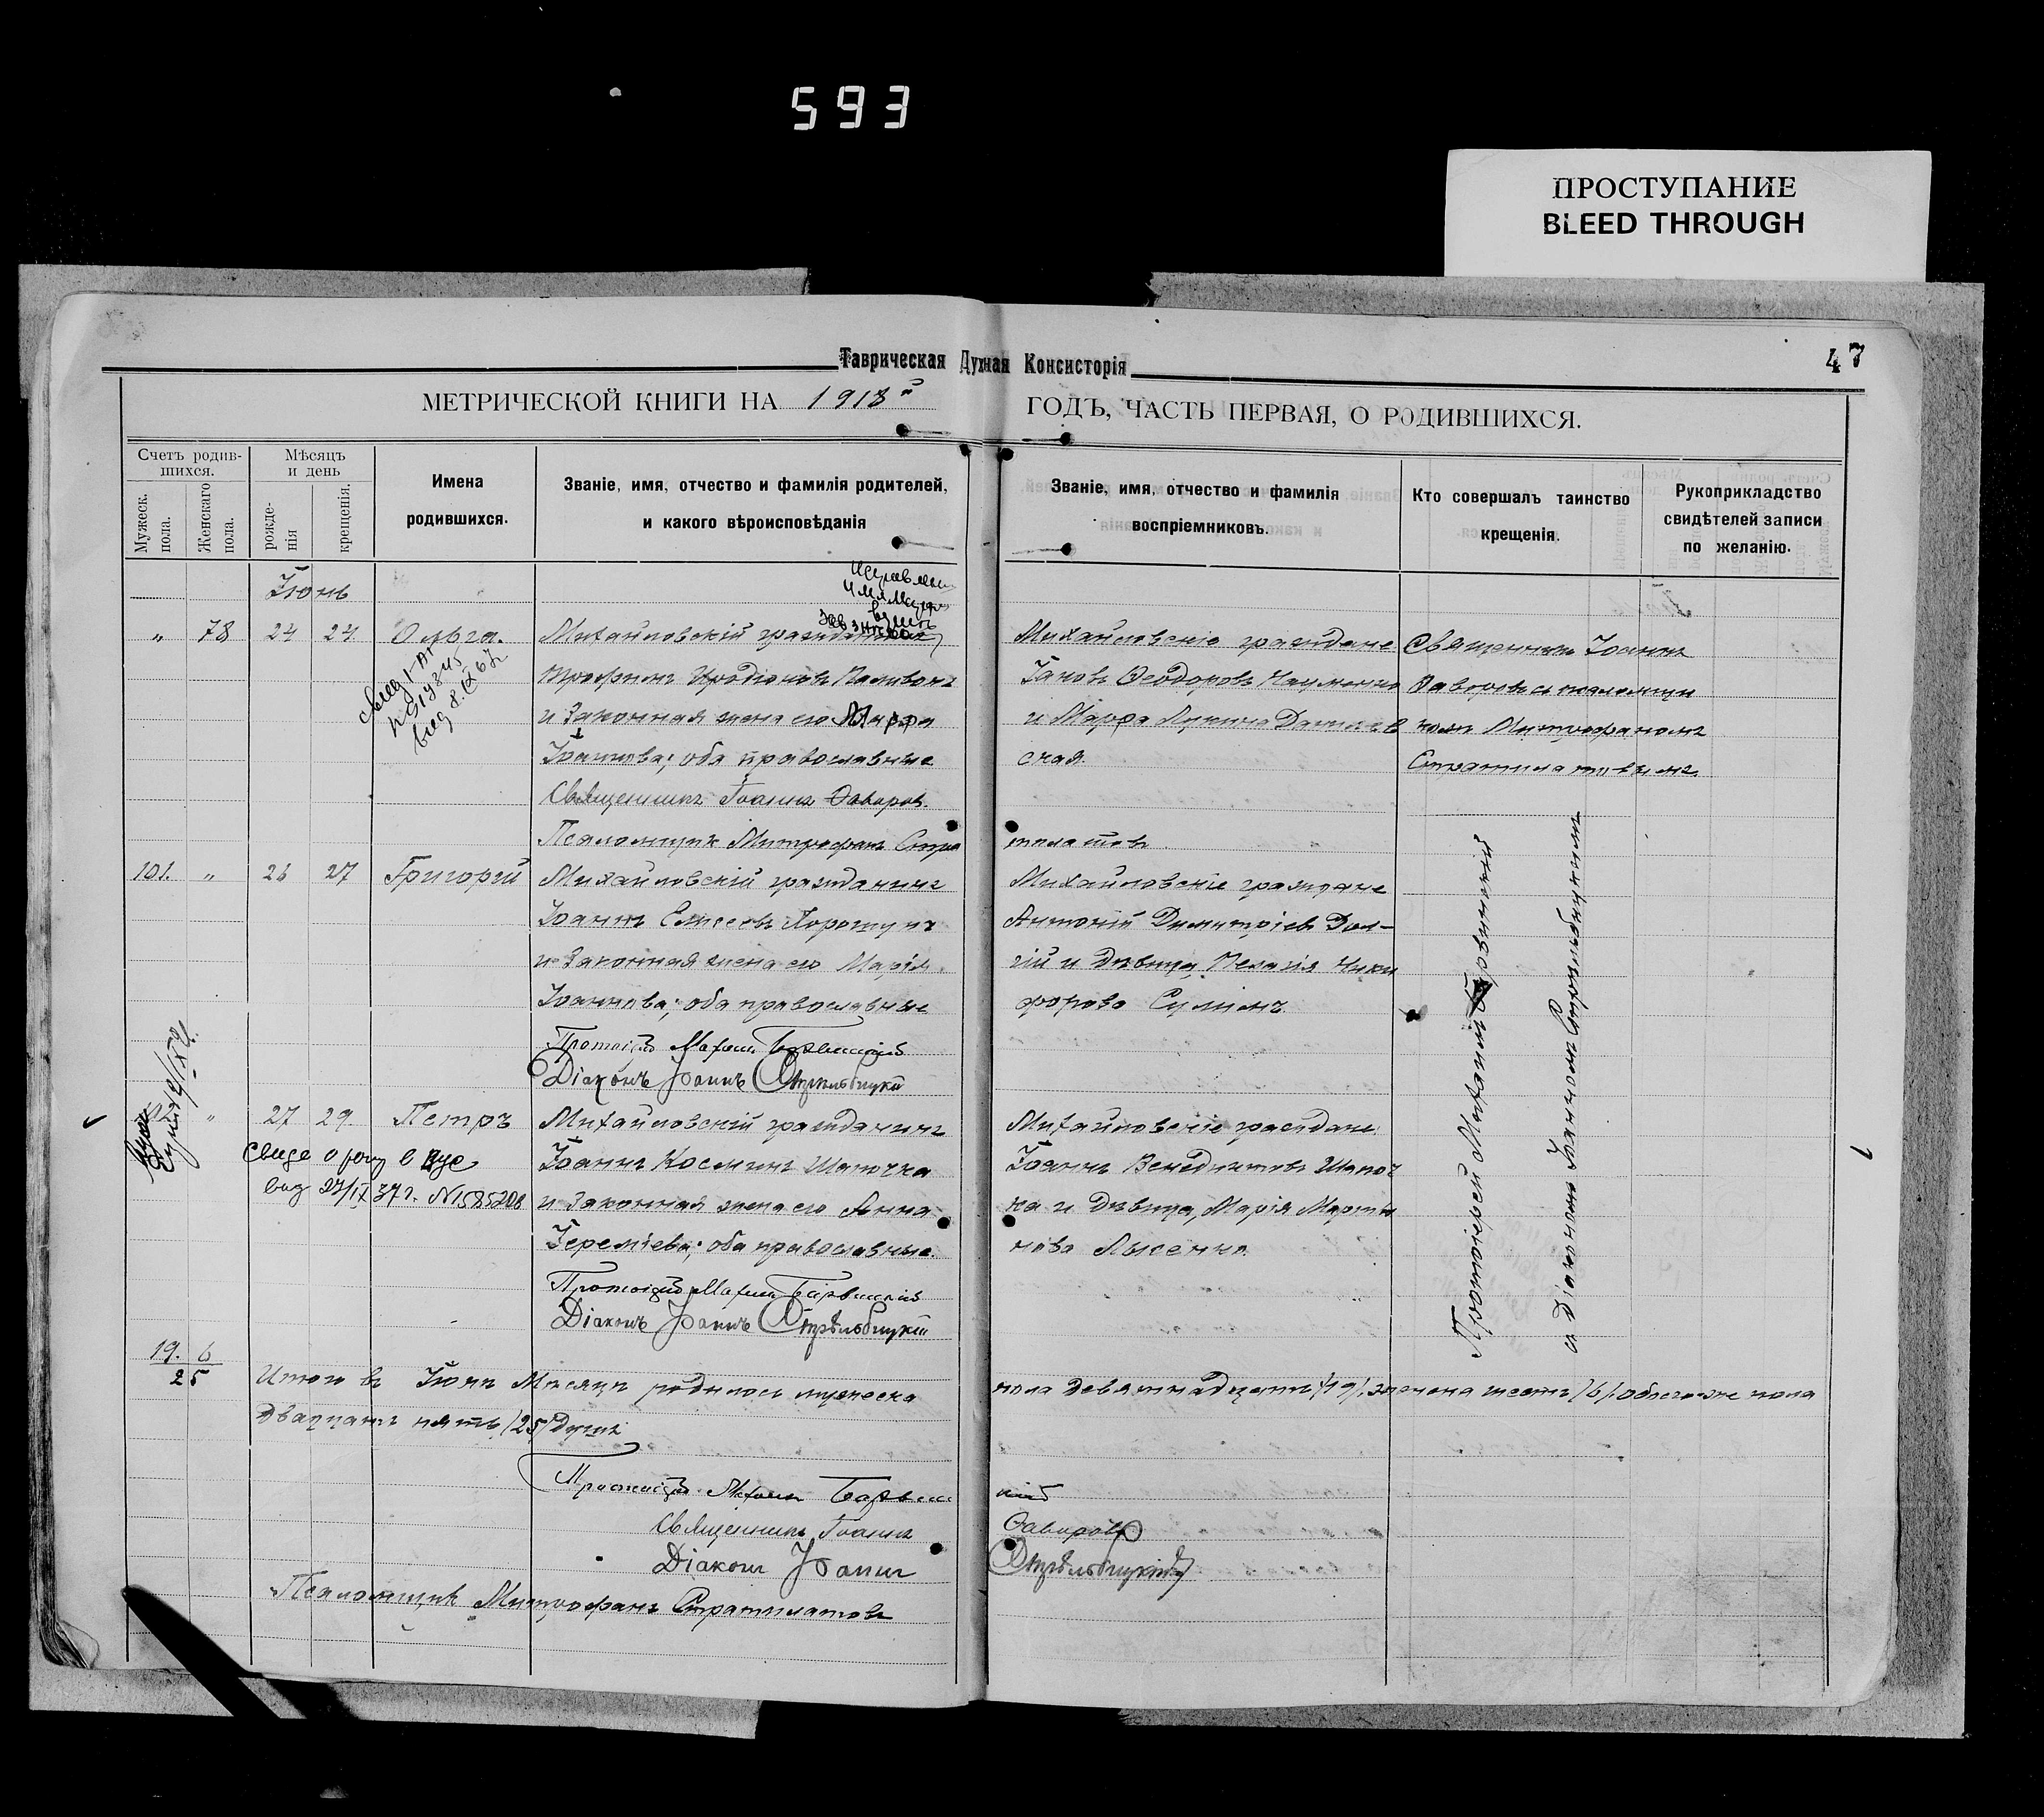 593
ПРОСТУПАНИЕ
BLEED THROUGH
Таврическая Духная Консисторія
47
МЕТРИЧЕСКОЙ КНИГИ НА 1918й ГОДЪ, ЧАСТЬ ПЕРВАЯ, О РОДИВШИХСЯ.
Счетъ родив-
шихся.
Мужеск.
пола.
Женскаго
пола.
Мѣсяцъ
и день
рожде-
нія
крещенія.
Имена
родившихся.
Званіе, имя, отчество и фамилія родителей,
и какого вѣроисповѣданія
Званіе, имя, отчество и фамилія
воспріемниковъ.
Кто совершалъ таинство
крещенія.
Рукоприкладство
свидѣтелей записи
по желанію.
Іюнь
„ 78 24 24 Ольга.
Михайловскій гражданинъ
Трофимъ Иродіоновъ Паливонъ
и законная жена его Марфа
Іоаннова; оба православные
Священникъ Іоаннъ Ѳаворов.
Псаломщикъ Митрофанъ Стра
тилатовъ
Михайловскіе граждане
Іаковъ Ѳеодоровъ Науменко
и Марфа Лукина Данилев
ская.
Священникъ Іоаннъ
Ѳаворовъ съ псаломщи
комъ Митрофаномъ
Стратилатовымъ
101. „ 26 27 Григорій
Михайловскій гражданинъ
Іоаннъ Елисеевъ Хорошунъ
и законная жена его Марія
Іоаннова; оба православные
Протоіерей Михаилъ Барвинскій
Діаконъ Іоаннъ Стрѣльбицкій
Михайловскіе граждане
Антоній Димитріевъ Дол-
гій и дѣвица, Пелагія Ники
форова Сулимъ.
Протоіерей Михаилъ Барвинскій
съ Діакономъ Іоанномъ Стрѣльбицкимъ
„ 27 29. Петръ
Свиде о рожд
выд 27/IX 37 г. N1585208
Михайловскій гражданинъ
Іоаннъ Косминъ Шапочка
и законная жена его Анна
Іереміева; оба православные.
Протоіерей Михаилъ Барвинскій
Діаконъ Іоаннъ Стрѣльбицкій
Михайловскіе граждане
Іоаннъ Венедиктовъ Шапоч
ка и дѣвица, Марія Марти
нова Лысенко.
19. 6
25
Итого въ Іюнѣ Мѣсяцѣ родилось мужеска пола девятнадцать /19/, женска шесть /6/, обоего же пола
двадцать пять /25/ душъ
Протоіерей Михаилъ Барвинскій
Священникъ Іоаннъ Ѳаворовъ
Діаконъ Іоаннъ Стрѣльбицкій
Псаломщикъ Митрофанъ Стратилатовъ